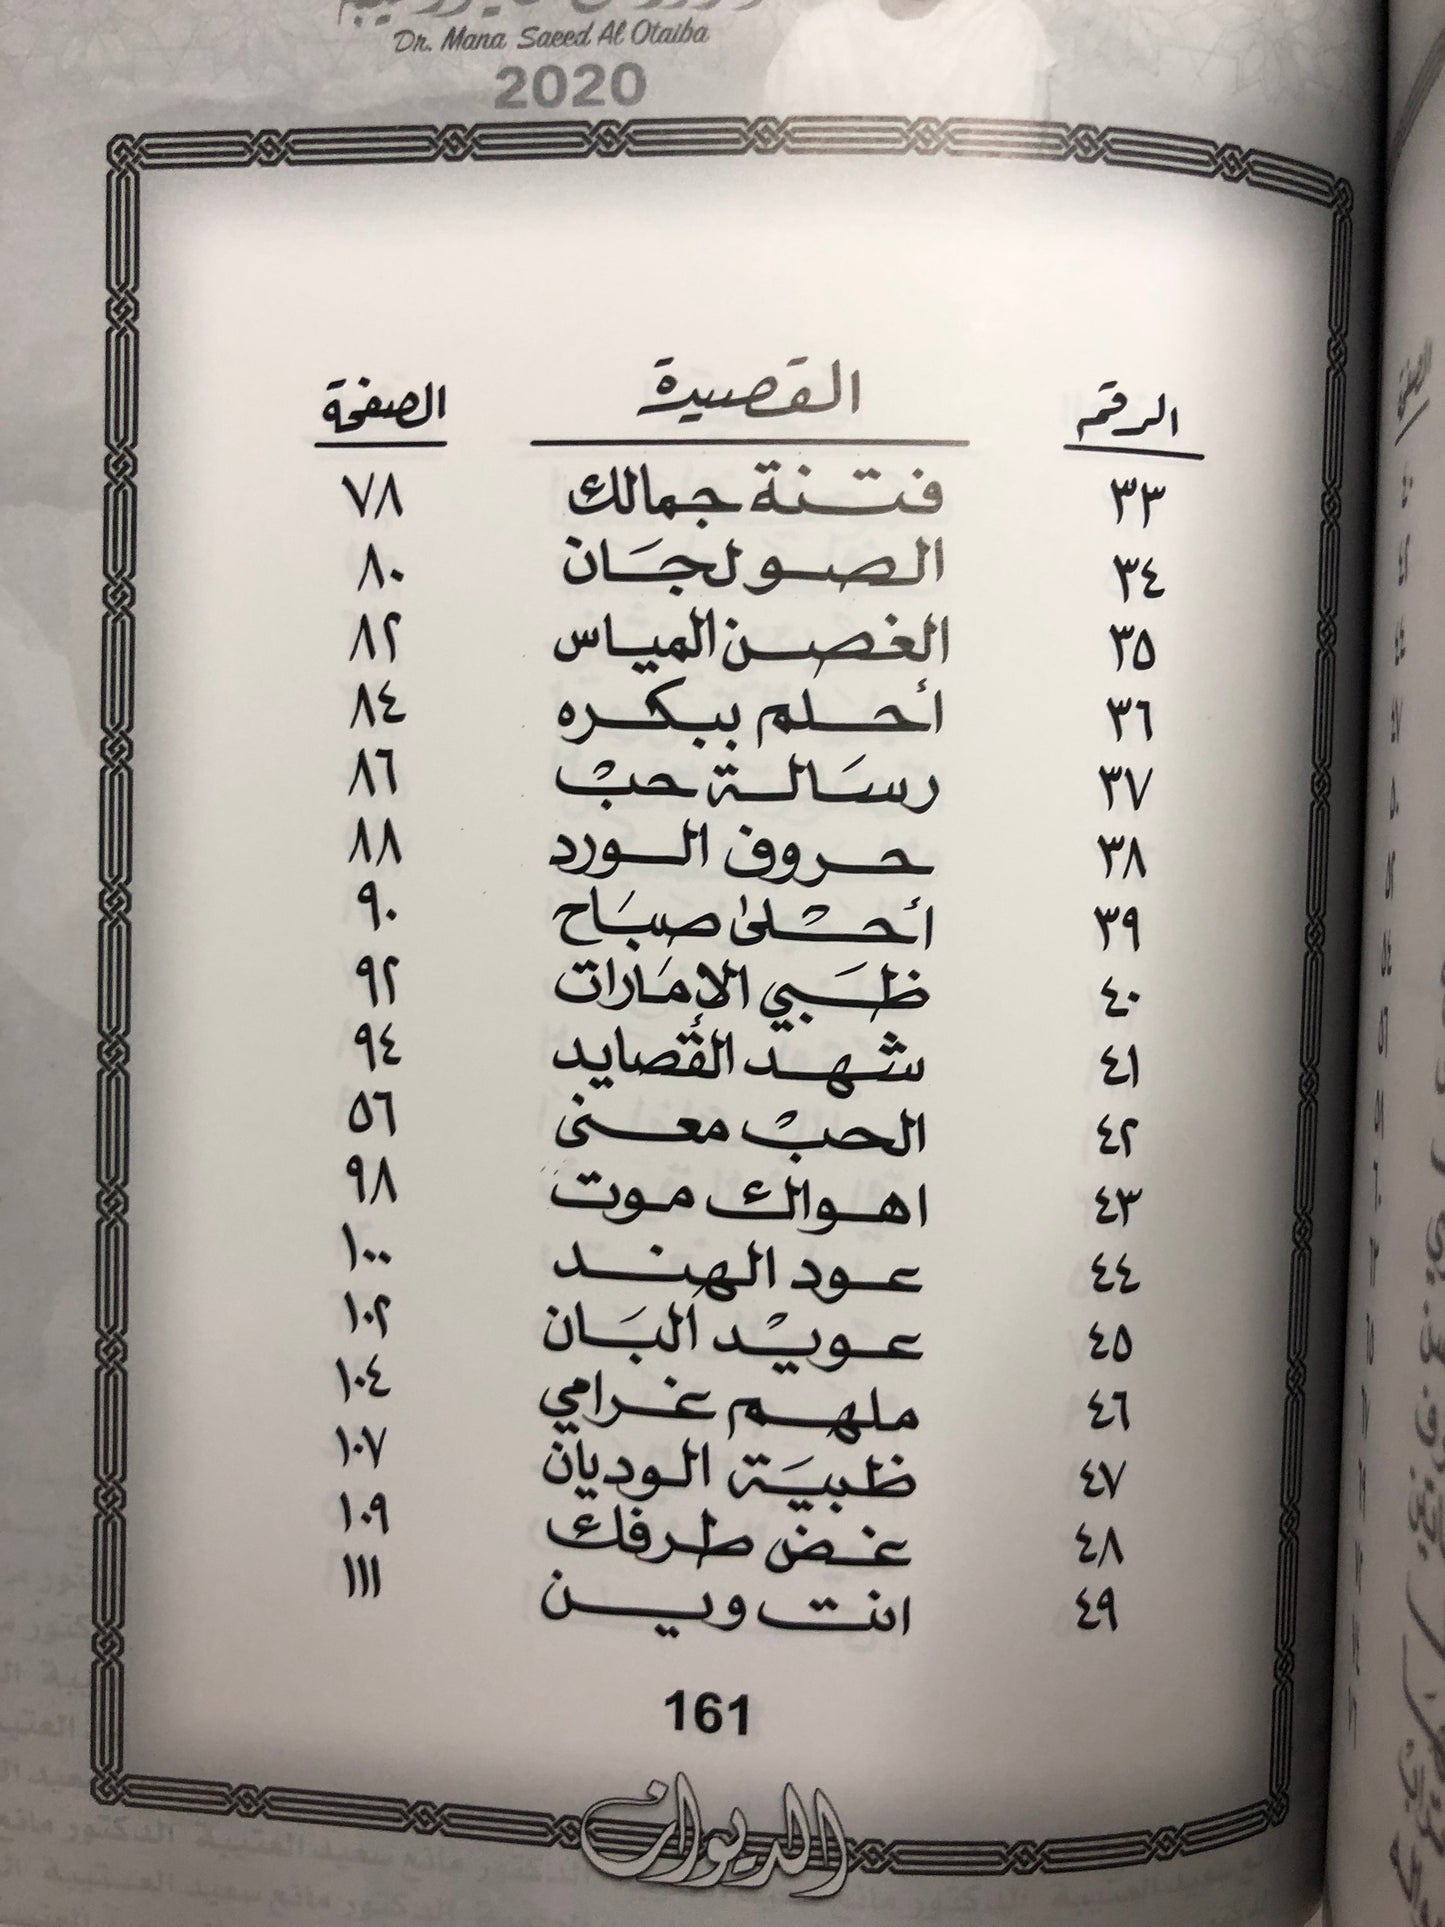 Dr. Mana Saeed Al Otaiba
2020
الرقم القصيدة الصفحة
٣٣ فتنة جمالك ٧٨
٣٤ الصولجان ٨٠
٣٥ الغصن المياس ٨٢
٣٦ أحلم ببكره ٨٤
٣٧ رسَالة حبْ ٨٦
٣٨ حروف الورد ٨٨
٣٩ أحْلىٰ صبَاح ٩٠
٤٠ ظبَي الإمَارات ٩٢
٤١ شهد القُصايد ٩٤
٤٢ الحبْ معنى ٥٦
٤٣ اهواك موت ٩٨
٤٤ عود الهند ١٠٠
٤٥ عويْد البَان ١٠٢
٤٦ ملهم غرامي ١٠٤
٤٧ ظبيَة الوديان ١٠٧
٤٨ غض طرفك ١٠٩
٤٩ انت وين ١١١
161
الديوان